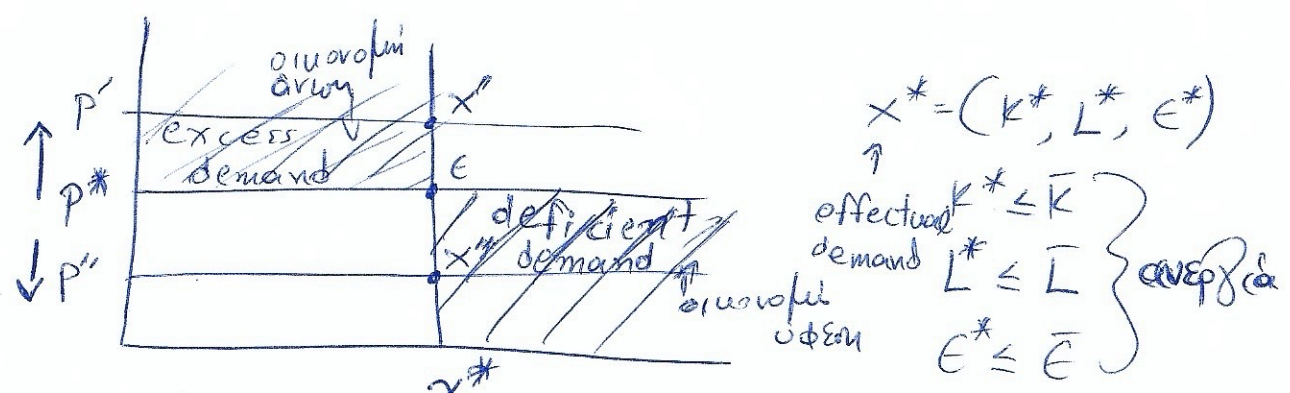 οικονομική
άνθηση
P'
X''
excess
demand
P*
ε
deficient
demand
P''
X'''
οικονομική
ύφεση
X* = (K*, L*, ε*)
effectual
demand
K* ≤ K̄
L* ≤ L̄
ε* ≤ ε̄
ανεργία